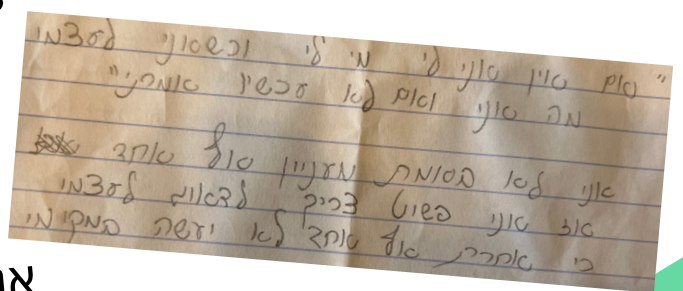 "אם אין אני לי מי לי וכשאני לעצמי
מה אני ואם לא עכשיו אימתי"
אני לא באמת מעניין אף אחד
אז אני פשוט צריך לדאוג לעצמי
כי אחרת אף אחד לא יעשה במקומי